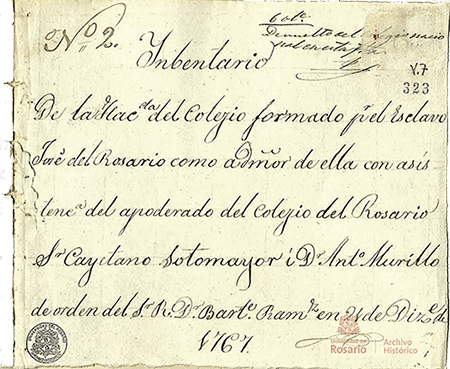 Nº. 2.
Inbentario
V.7
323
De la Hac.das del Colegio formado pr. el Esclavo
José del Rosario como admor de ella con asis
tenca. del apoderado del Colegio del Rosario
Sr. Cayetano Sotomayor i Dr. Anto. Murillo
de orden del Sr. R. Dr. Barte. Ramz. en 21 de Dize. de
1767.
Universidad del
Rosario
Archivo
Histórico